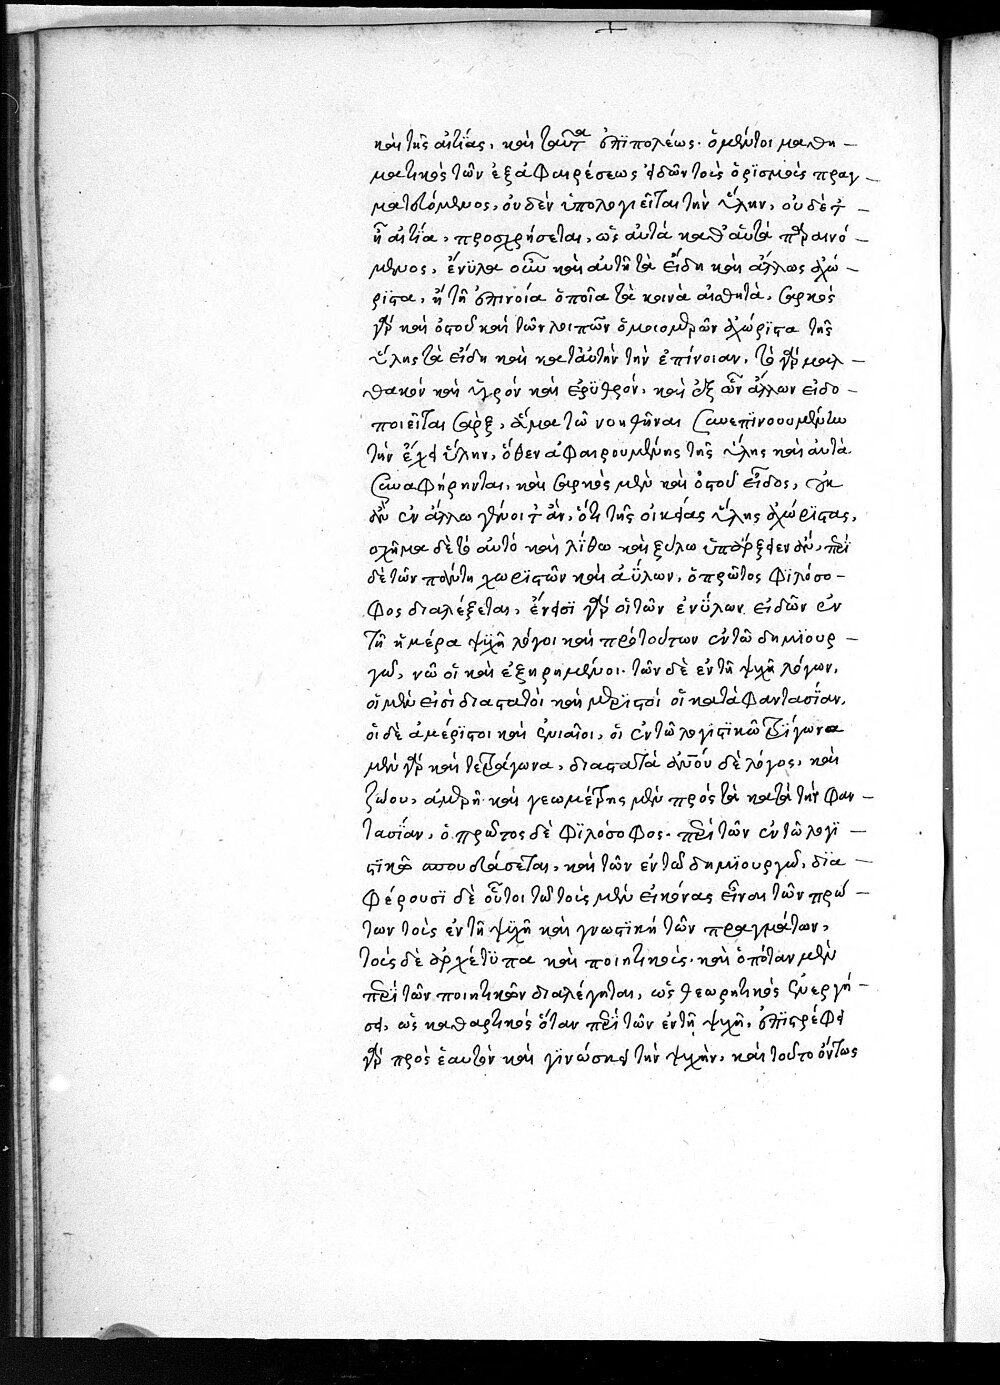 καὶ τῆς αἰτίας, καὶ ταῦτα ἐπιπολέως· ὁ μέντοι μαθη —
ματικὸς τῶν ἐξ ἀφαιρέσεως εἰδῶν τοὺς ὁρισμοὺς πραγ —
ματευόμενος, οὐδὲν ὑπολογιεῖται τὴν ὕλην, οὐδὲ τ —
ῆ αἰτία, προσχρήσεται, ὡς αὐτὰ καθ' αὑτὰ περαινό —
μενος, ἔνϋλα οὖν καὶ αὐτῆ τὰ εἴδη καὶ ἄλλως ἀχώ —
ριστα, ἢ τῆ ἐπινοία ὁποῖα τὰ κοινὰ αἰσθητά, σαρκὸς
γὰρ καὶ ὀστοῦ καὶ τῶν λοιπῶν ὁμοιομερῶν ἀχώριστα τῆς
ὕλης τὰ εἴδη καὶ κατ' αὐτὴν τὴν ἐπίνοιαν, τὸ γὰρ μαλ —
θακὸν καὶ ὑγρὸν καὶ ἐρυθρόν, καὶ ἐξ ὧν ἄλλων εἰδο —
ποιεῖται σάρξ, ἅμα τῶ νοηθῆναι συνεπινοουμένην
τὴν ἔχει ὕλην, ὅθεν ἀφαιρουμένης τῆς ὕλης καὶ αὐτὰ
συναφήρηνται, καὶ σαρκὸς μὲν καὶ ὀστοῦ εἶδος, οὐκ
ἂν ἐν ἄλλω γένοιτ' ἄν, ὅτι τῆς οἰκείας ὕλης ἀχώριστας,
σχῆμα δὲ τὸ αὐτὸ καὶ λίθω καὶ ξύλω ὑπάρξειεν ἄν, περὶ
δὲ τῶν πάντη χωριστῶν καὶ ἀΰλων, ὁ πρῶτος φιλόσο —
φος διαλέξεται, ἔνεισι γὰρ οἱ τῶν ἐνύλων εἰδῶν ἐν
τῆ ἡμέρα ψυχῆ λόγοι καὶ πρὸ τούτων ἐν τῶ δημιουρ —
γῶ, νῶ οἱ καὶ ἐξηρημένοι· τῶν δὲ ἐν τῆ ψυχῆ λόγων,
οἱ μέν εἰσι διαστατοὶ καὶ μεριστοί οἱ κατὰ φαντασίαν,
οἱ δὲ ἀμέριστοι καὶ ἑνιαῖοι, οἱ ἐν τῶ λογιστικῶ τρίγωνα
μὲν γὰρ καὶ τετράγωνα, διαστατὰ ἀνοῦ δὲ λόγος, καὶ
ζώου, ἀμερῆ· καὶ γεωμέτρης μὲν πρὸς τὰ κατὰ τὴν φαν —
τασίαν, ὁ πρῶτος δὲ φιλόσοφος· περὶ τῶν ἐν τῶ λογι —
στικῶ σπουδάσεται, καὶ τῶν ἐν τῶ δημιουργῶ, δια —
φέρουσι δὲ οὗτοι τῶ τοὺς μὲν εἰκόνας εἶναι τῶν πρώ —
των τοὺς ἐν τῆ ψυχῆ καὶ γνωστικὴ τῶν πραγμάτων,
τοὺς δὲ ἀρχέτυπα καὶ ποιητικούς· καὶ ὁπόταν μὲν
περὶ τῶν ποιητικῶν διαλέγηται, ὡς θεωρητικὸς ἐνεργή —
σει, ὡς καθαρτικὸς ὅταν περὶ τῶν ἐν τῆ ψυχῆ, ἐπιστρέφει
γὰρ πρὸς ἑαυτὸν καὶ γινώσκει τὴν ψυχήν, καὶ τοῦτο ὄντως